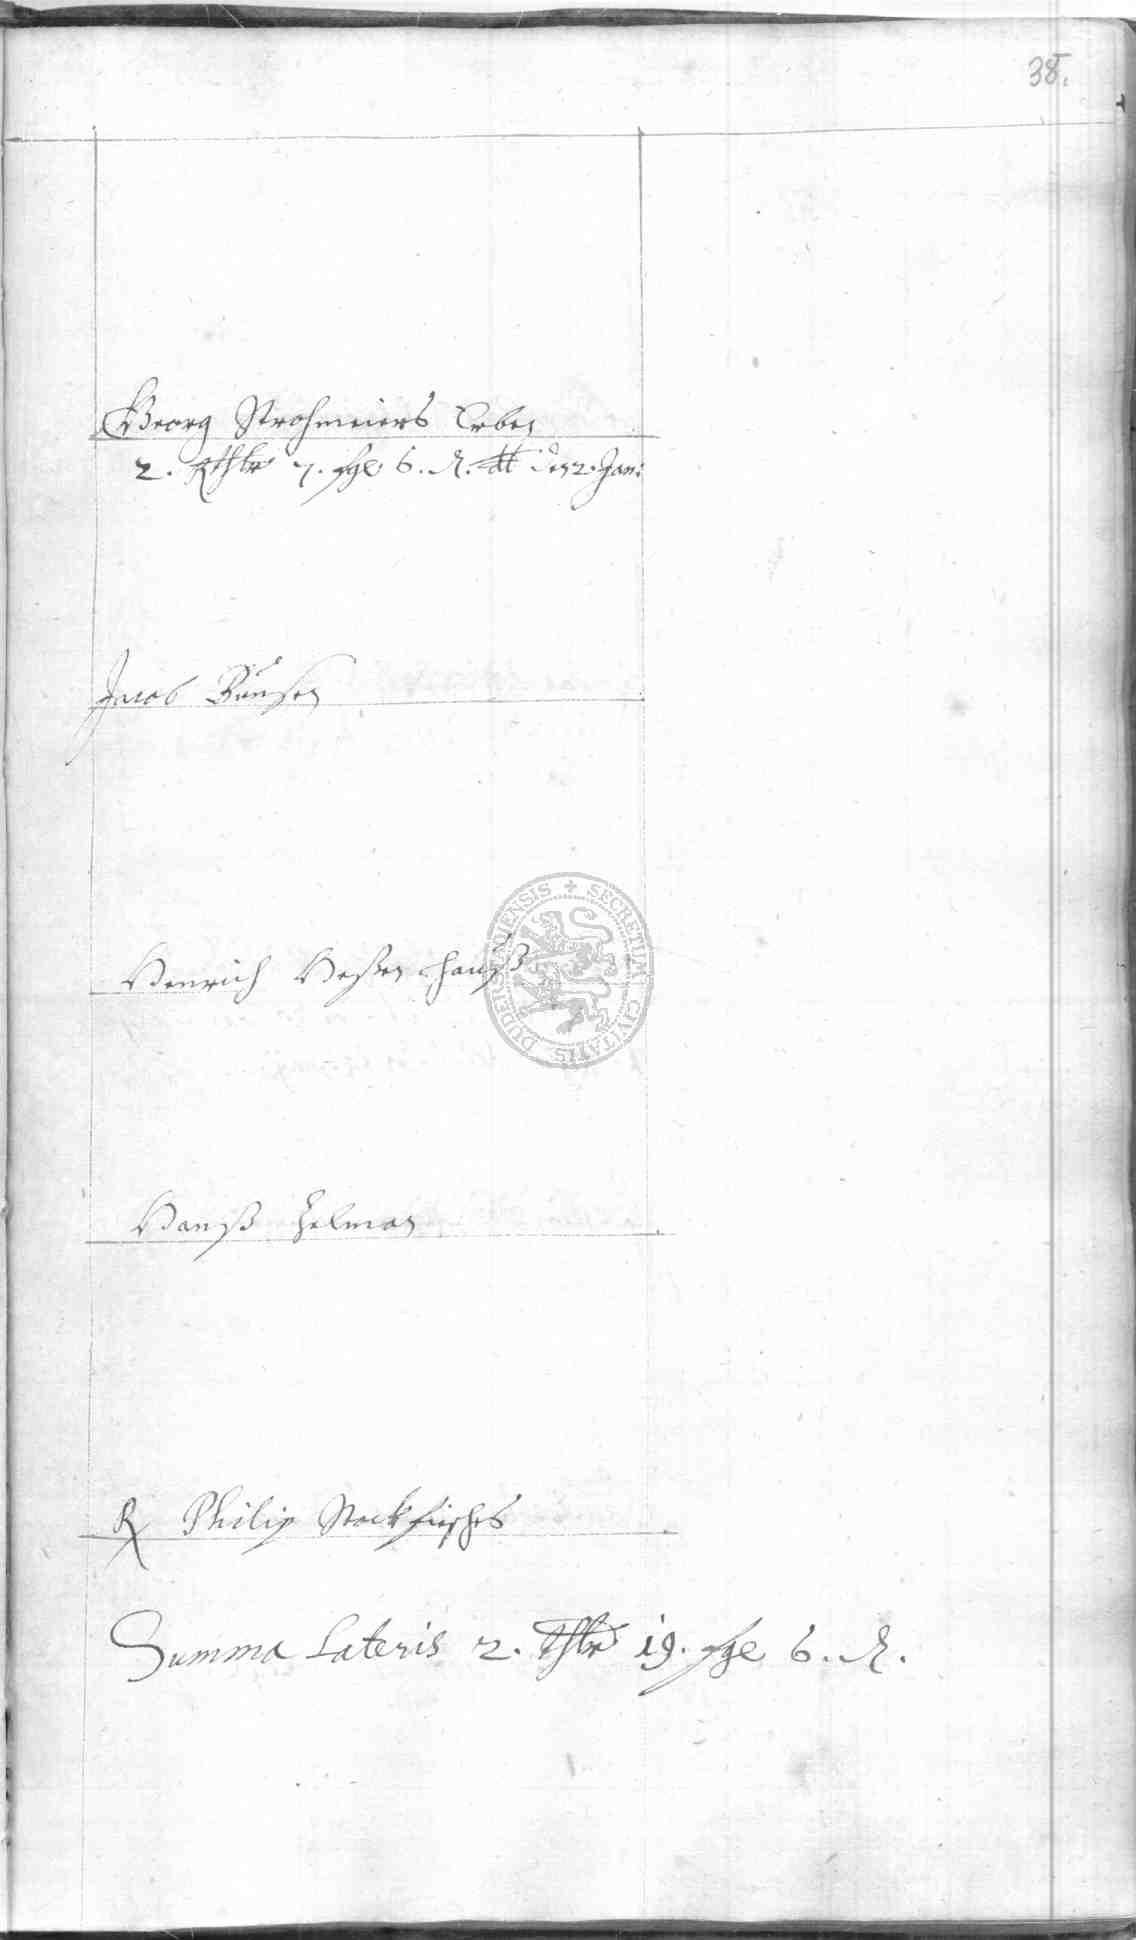 38.
Georg Strohmeiers Erben
2. Rthlr 7. fgl. 6. d. tt den 2. Jan:
Jacob Bünsen
Henrich hauß
Hanß Helman
R Philip Stockfischs
Summa Lateris 2. Thlr 19. fgl 6. d.
SECRETUM CIVITATIS DUDERSTATENSIS